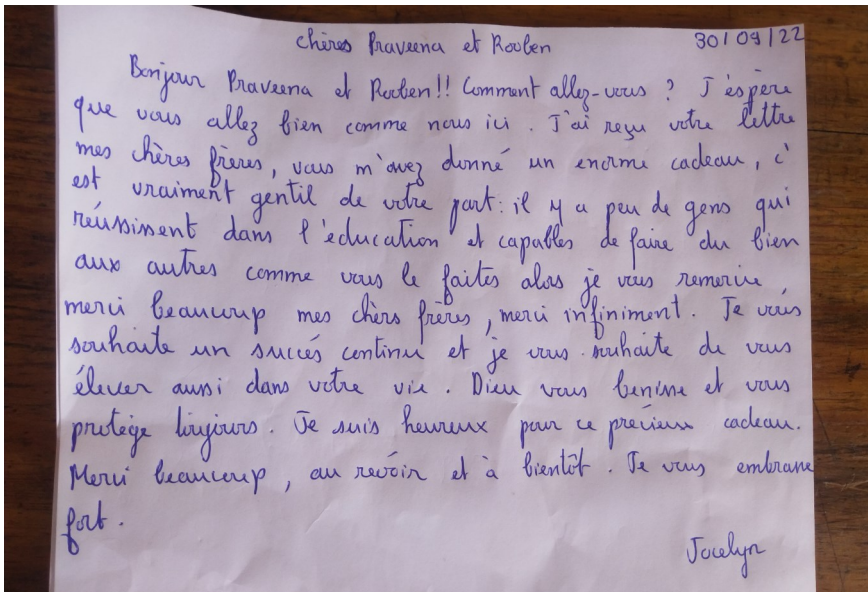 Chères Praveena et Rooben 30/09/22
Bonjour Praveena et Rooben!! Comment allez-vous ? J'éspère
que vous allez bien comme nous ici. J'ai reçu votre lettre
mes chères frères, vous m'avez donné un enorme cadeau, c'
est vraiment gentil de votre part: il y a peu de gens qui
réussissent dans l'éducation et capables de faire du bien
aux autres comme vous le faites alors je vous remercie
merci beaucoup mes chèrs frères, merci infiniment. Je vous
souhaite un succés continu et je vous souhaite de vous
élever aussi dans votre vie. Dieu vous benisse et vous
protège toujours. Je suis heureux pour ce précieux cadeau.
Merci beaucoup, au revoir et à bientôt. Je vous embrasse
fort.
Jocelyn